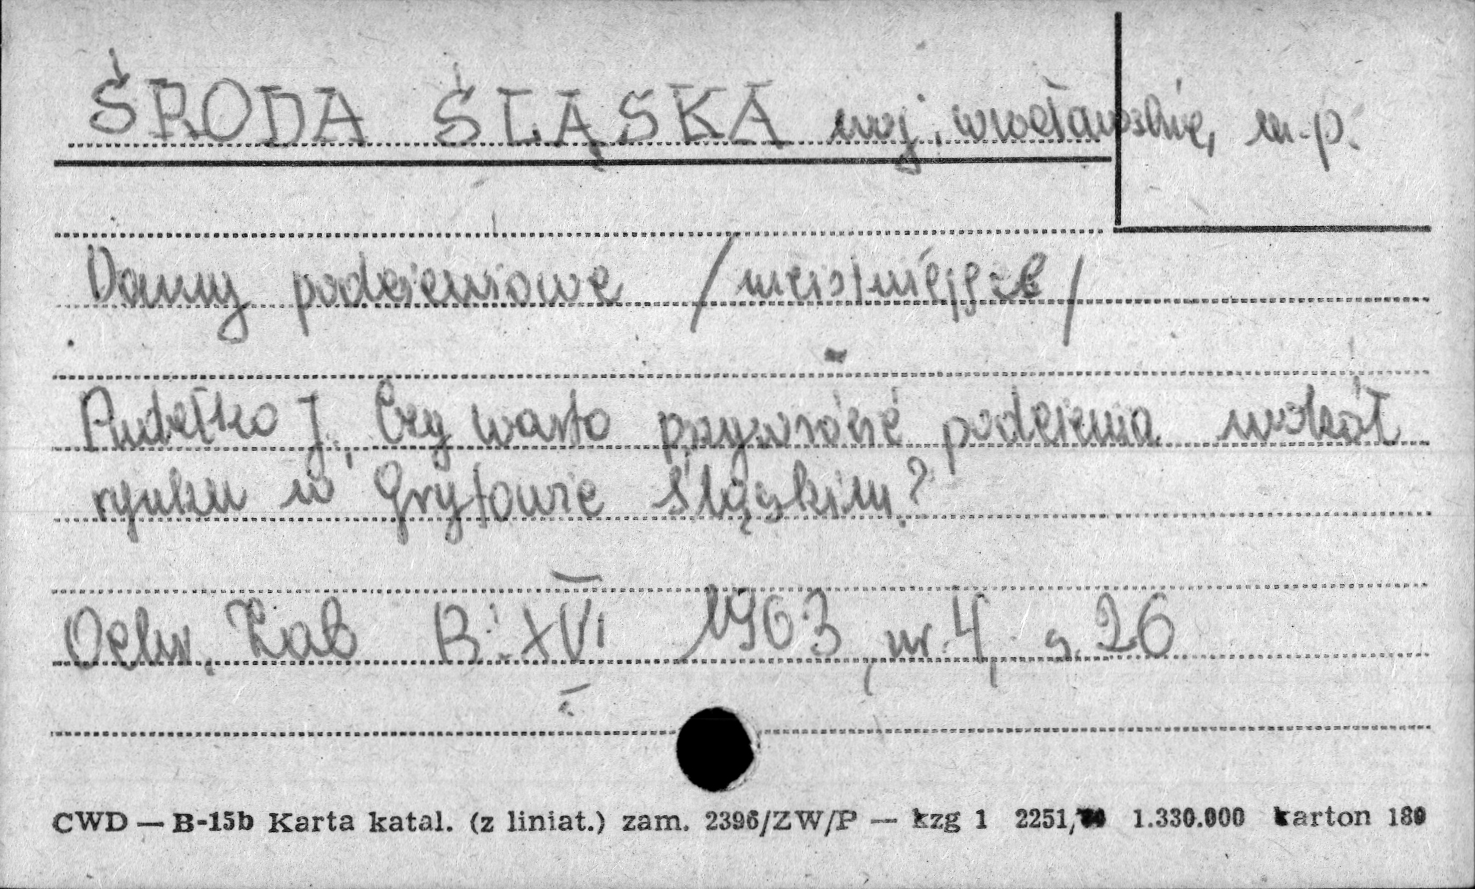 ŚRODA ŚLĄSKA woj. wrocławskie, m.p.
Domy podcieniowe /nieistniejące/
Pudełko J, Czy warto przywrócić podcienia wokół
rynku w Gryfowie Śląskim?
Ochr. Zab R: XVI 1963, nr. 4, s. 26
CWD — B-15b Karta katal. (z liniat.) zam. 2396/ZW/P — kzg 1 2251/70 1.330.000 karton 180